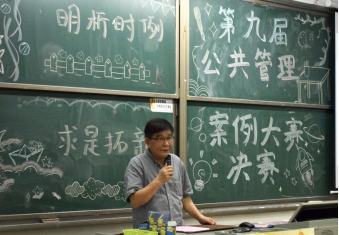 明析时例
第九届
公共管理
求是拓新
案例大赛
决赛